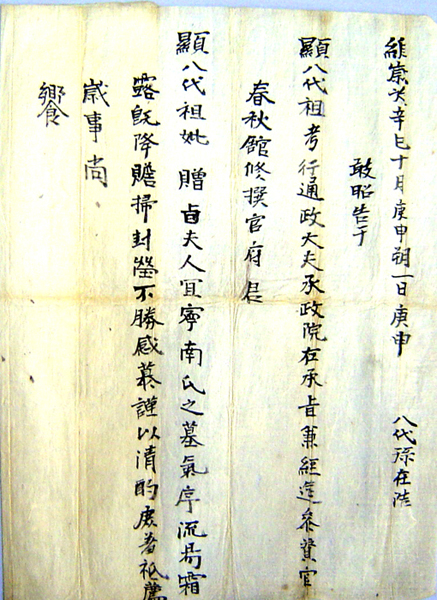 維崇禎辛巳十月庚申朔一日庚申 八代孫在浩
敢昭告于
顯八代祖考行通政大夫承政院左承旨兼經筵參贊官
春秋館修撰官府君
顯八代祖妣 贈 夫人宜寧南氏之墓氣序流易霜
露旣降瞻掃封塋不勝感慕謹以清酌庶羞祗薦
歲事尙
饗